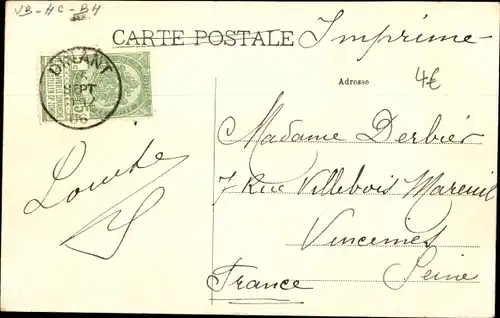 VB-4C-B4
CARTE POSTALE
Imprimé
DINANT
SEPT
Adresse
4€
Madame Derbier
7 Rue Villebois Mareuil
Vincennes
Seine
France